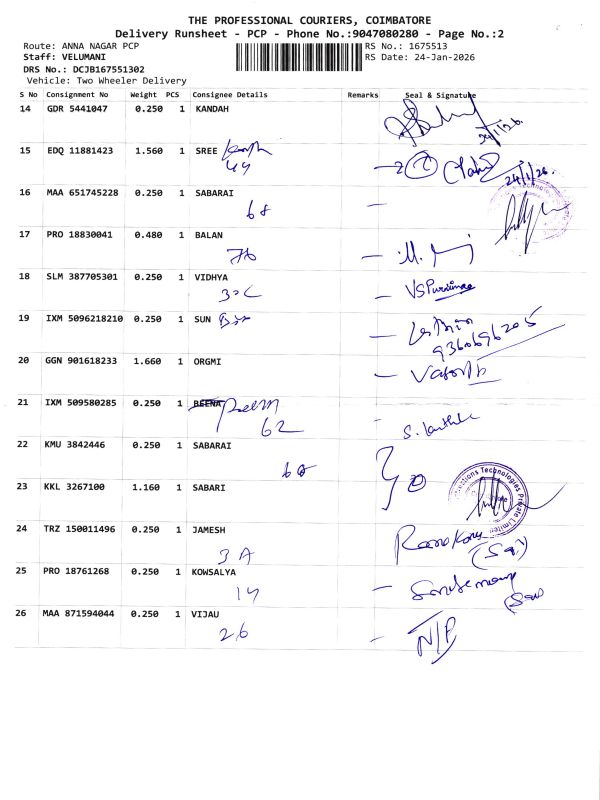 THE PROFESSIONAL COURIERS, COIMBATORE
Delivery Runsheet - PCP - Phone No.:9047080280 - Page No.:2
Route: ANNA NAGAR PCP
RS No.: 1675513
Staff: VELUMANI
RS Date: 24-Jan-2026
DRS No.: DCJB167551302
Vehicle: Two Wheeler Delivery
S No Consignment No Weight PCS Consignee Details Remarks Seal & Signature
14 GDR 5441047 0.250 1 KANDAH
24/1/26.
15 EDQ 11881423 1.560 1 SREE
49
24/1/26.
16 MAA 651745228 0.250 1 SABARAI
68
17 PRO 18830041 0.480 1 BALAN
7b
18 SLM 387705301 0.250 1 VIDHYA
VSPurnima
19 IXM 5096218210 0.250 1 SUN
9360696205
20 GGN 901618233 1.660 1 ORGMI
21 IXM 509580285 0.250 1 BEENA
62
22 KMU 3842446 0.250 1 SABARAI
68
23 KKL 3267100 1.160 1 SABARI
24 TRZ 150011496 0.250 1 JAMESH
3 A
25 PRO 18761268 0.250 1 KOWSALYA
14
26 MAA 871594044 0.250 1 VIJAU
26
N/P